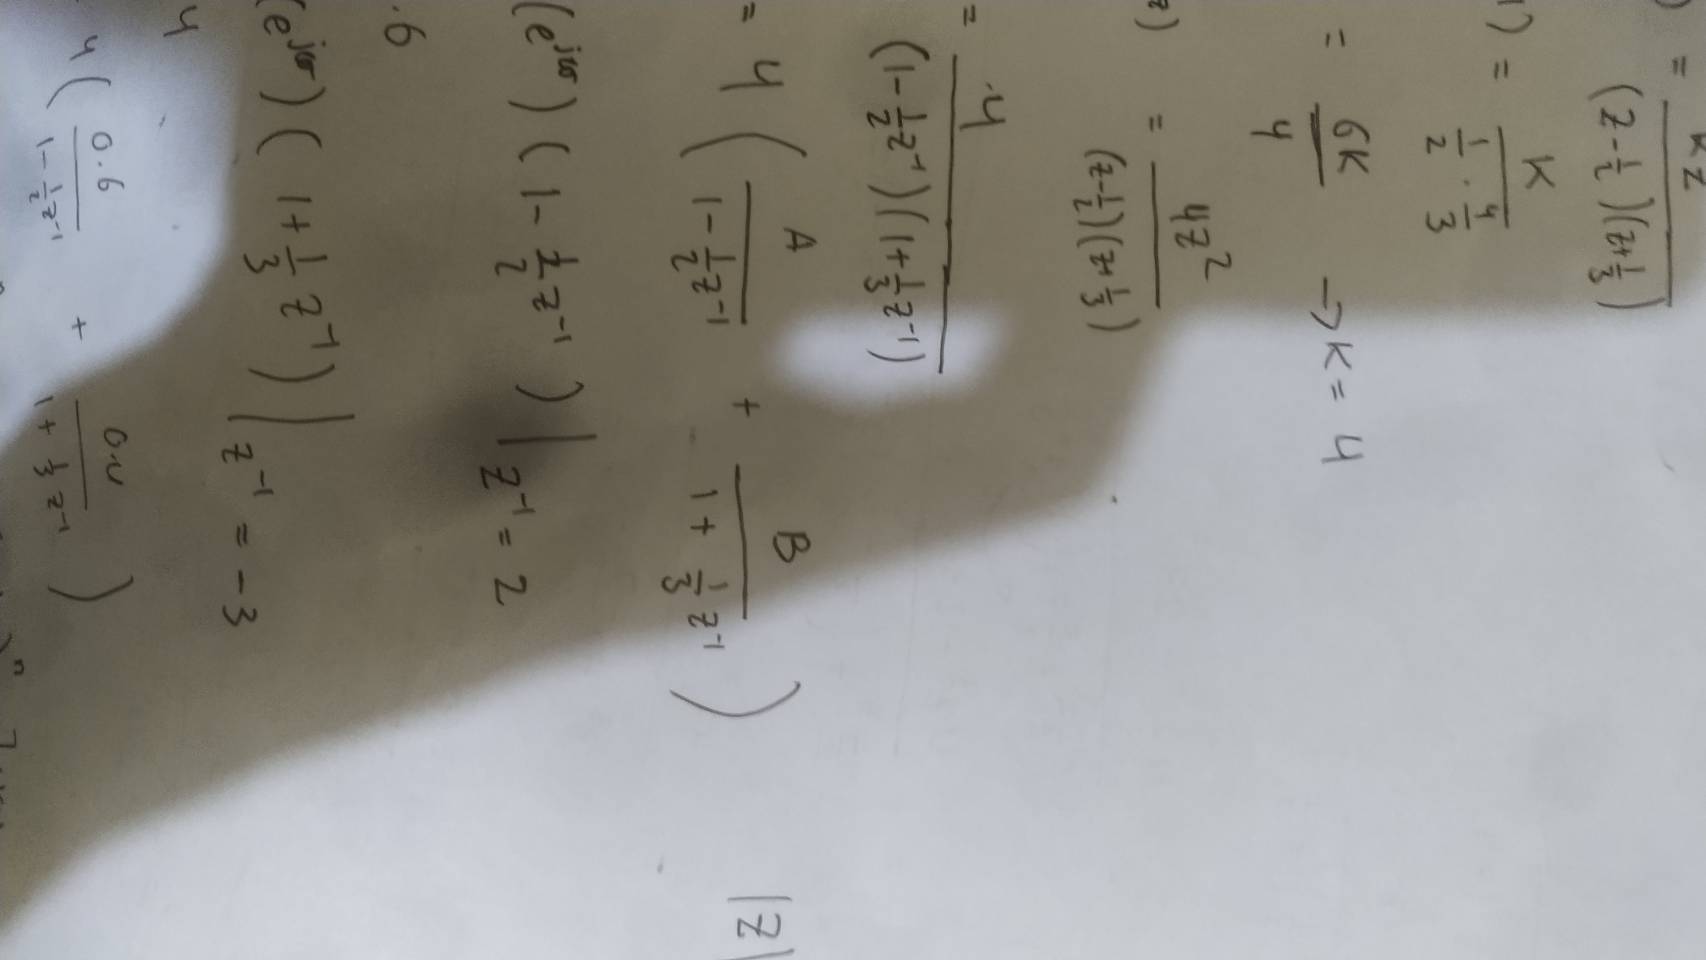 ) = kz / (z - 1/2)(z + 1/3)
1) = K / (1/2 · 4/3)
= 6K / 4 → K = 4
z) = 4z² / (z - 1/2)(z + 1/3)
= 4 / (1 - 1/2 z⁻¹)(1 + 1/3 z⁻¹)
= 4 ( A / (1 - 1/2 z⁻¹) + B / (1 + 1/3 z⁻¹) )
|z|
(e^jω) (1 - 1/2 z⁻¹) | z⁻¹ = 2
.6
(e^jω) (1 + 1/3 z⁻¹) | z⁻¹ = -3
4
4 ( 0.6 / (1 - 1/2 z⁻¹) + 0.4 / (1 + 1/3 z⁻¹) )